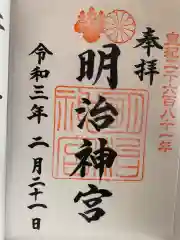 皇紀二千六百八十一年
奉拝
明治神宮
令和三年二月二十一日